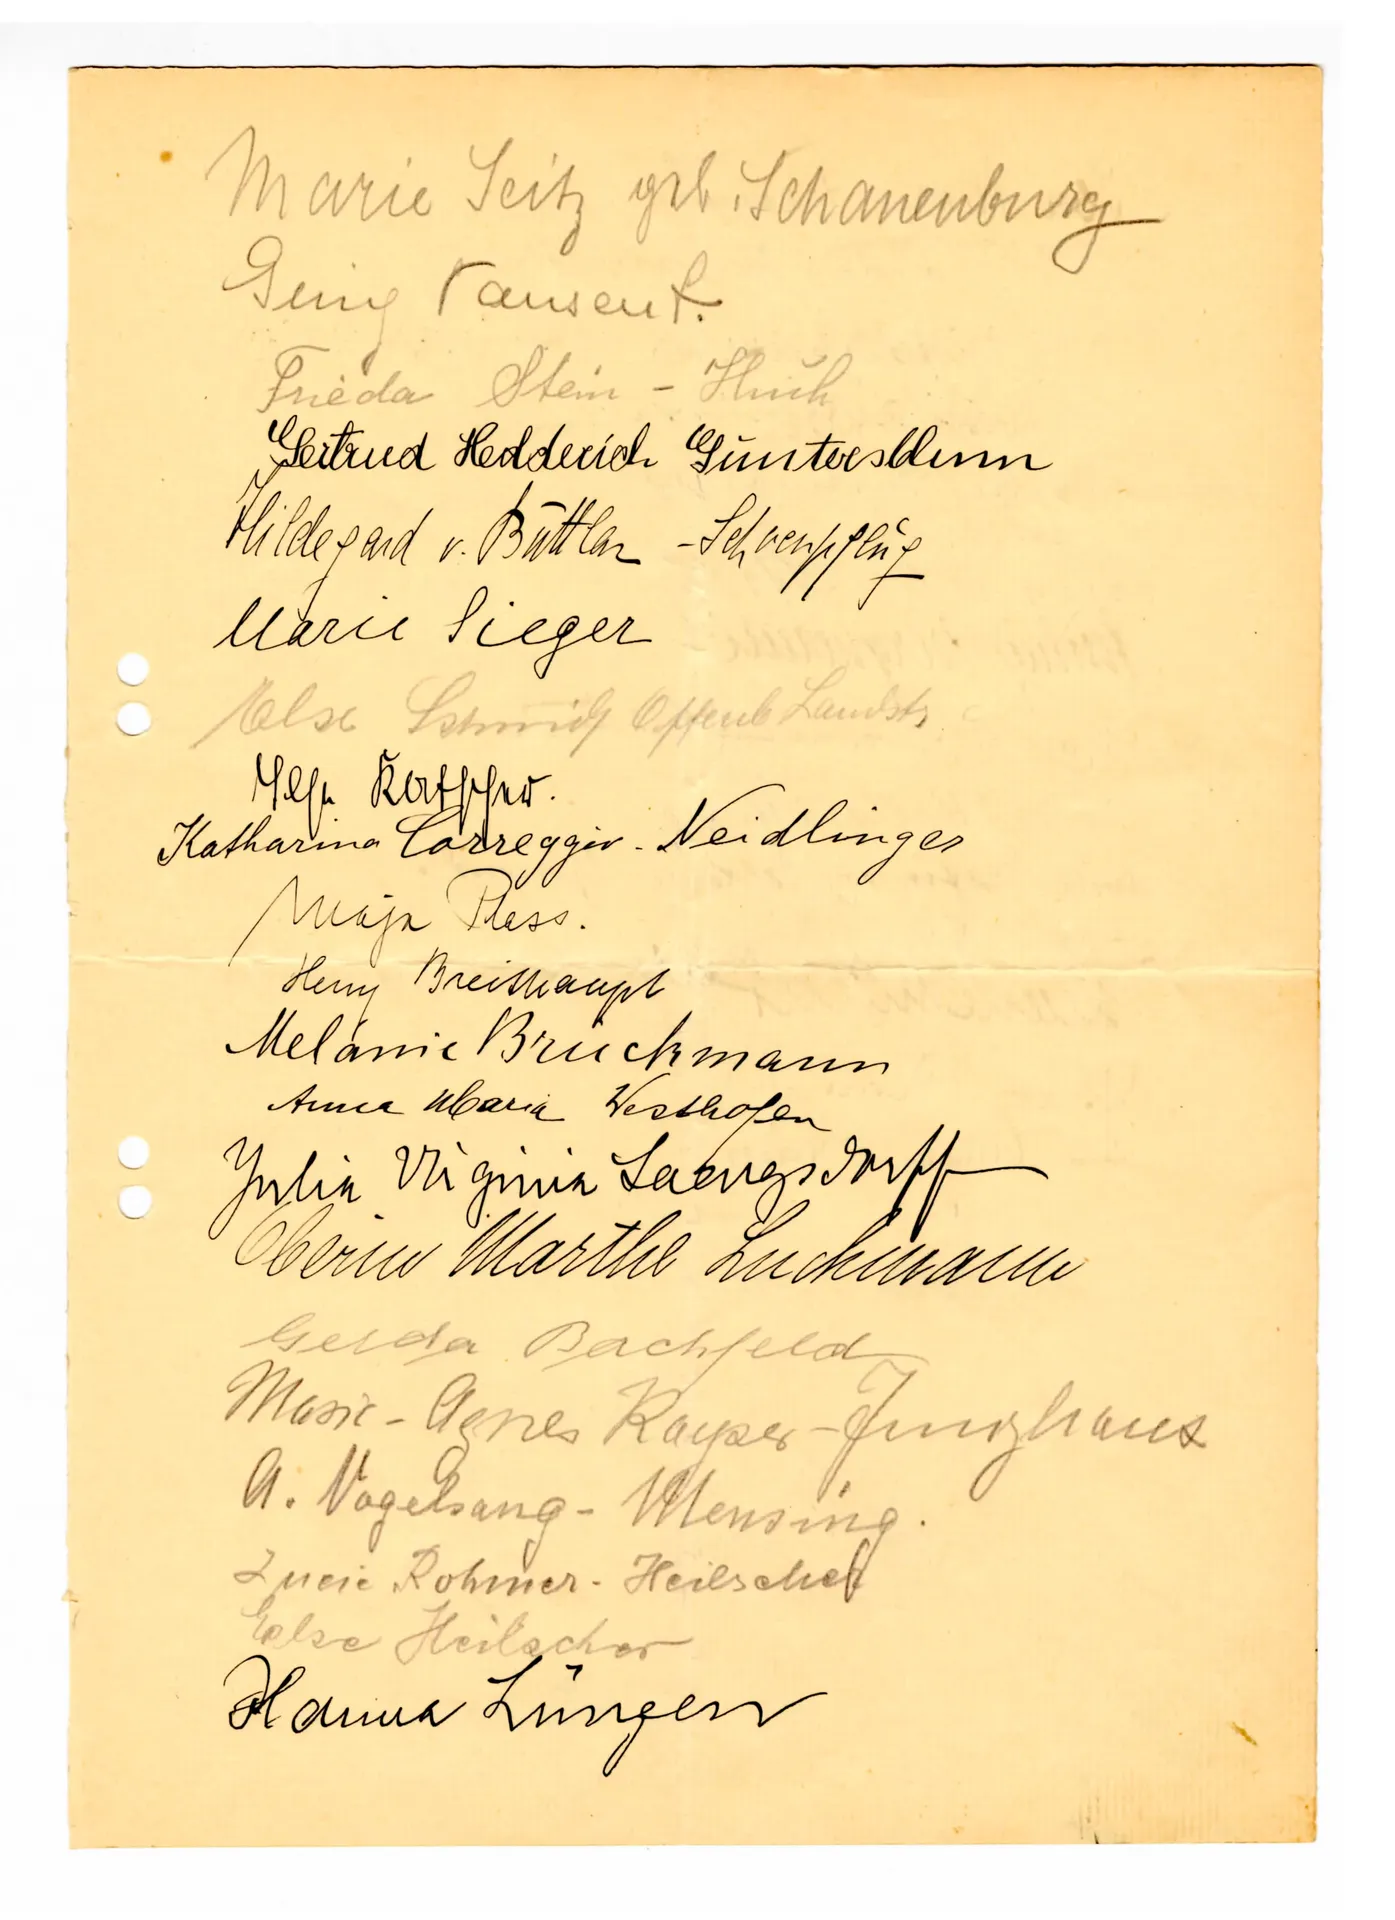 Marie Seitz geb. Schauenburg
Frieda Stein - Huch
Gertrud Hedderich Guntersblum
Hildegard v. Buttlar - Schoenpflug
Marie Sieger
Else Schmidt Offenb Landstr
Katharina Correggio - Neidlinger
Maja Plass.
Henny Breithaupt
Melanie Bruckmann
Anna Maria Westhofen
Julia Virginia Laengsdorff
Oberin Marthe Luckmann
Gerda Bachfeld
Marie - Agnes Kayser - Junghaus
A. Vogelsang - Mensing.
Lucie Rohmer - Heilscher
Else Heilscher
Hanna Lüngen